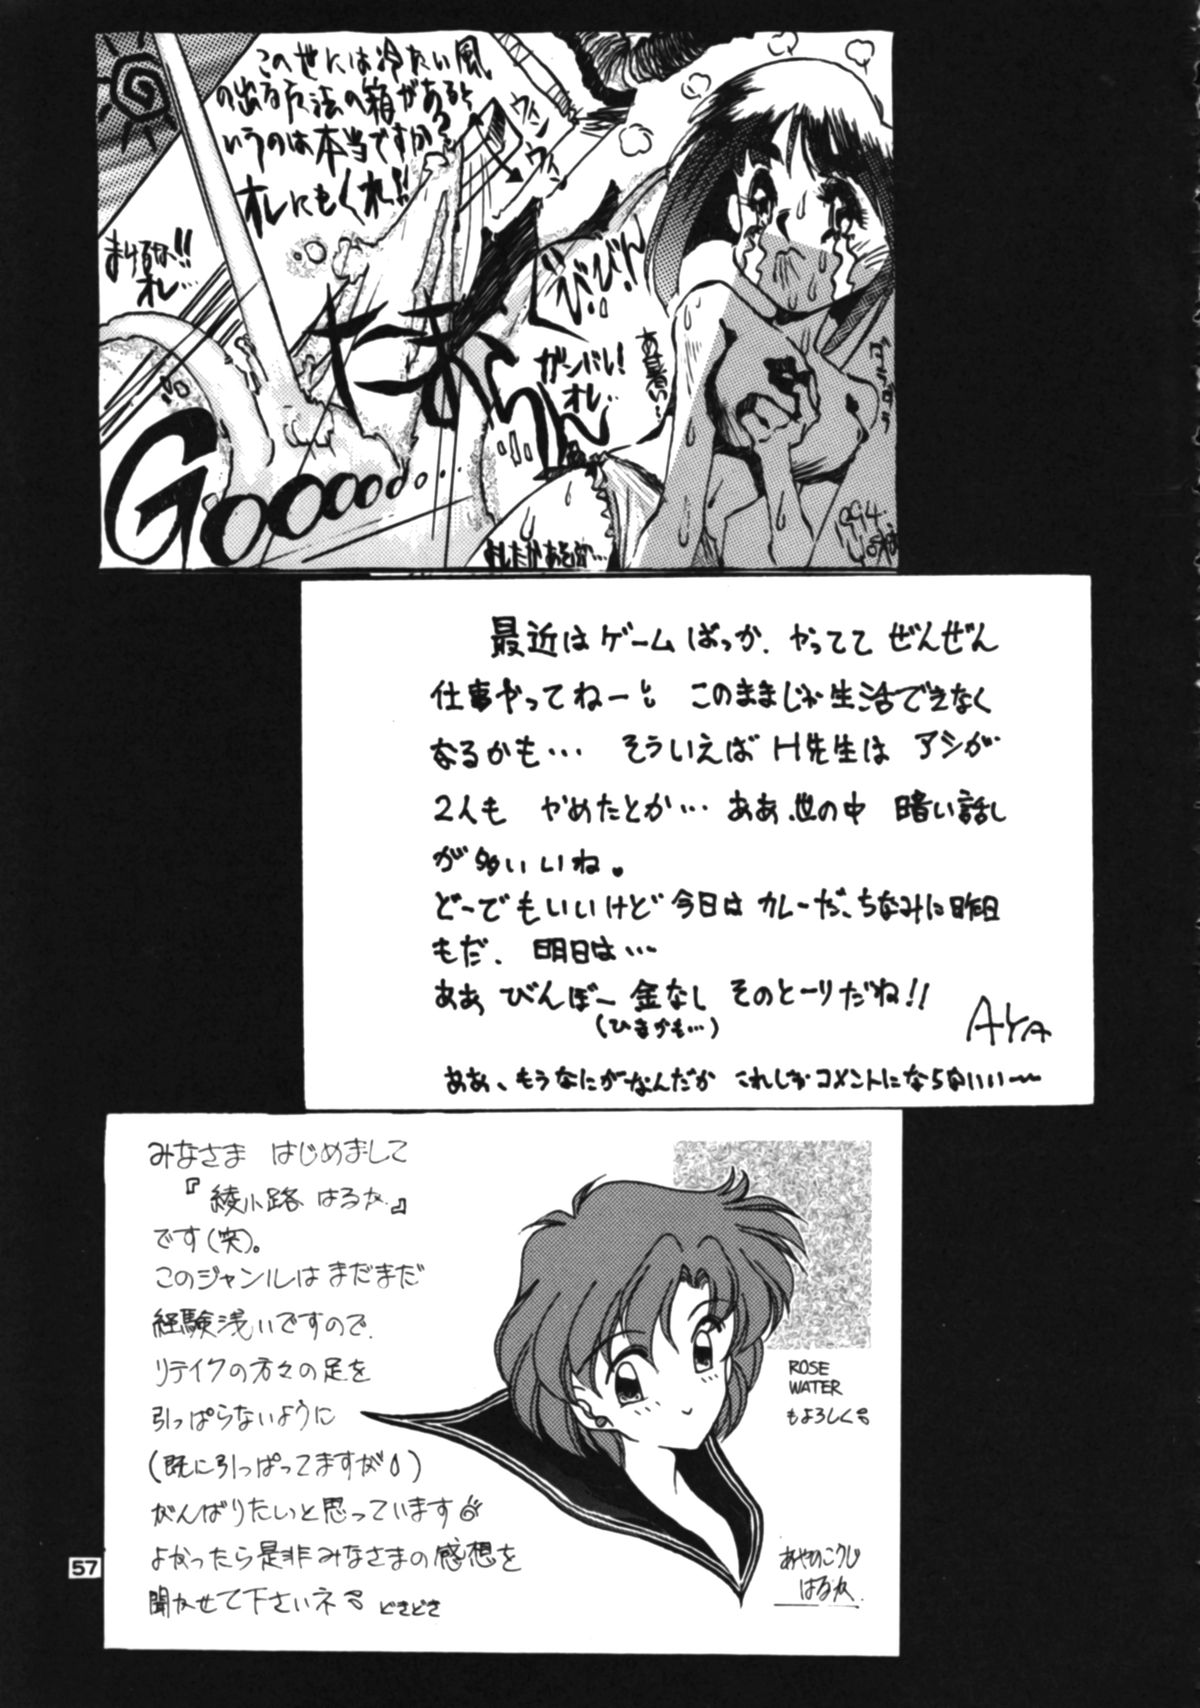 この世には冷たい風
の出る方法の箱があると
いうのは本当ですか?
オレにもくれ!!
ウィン
ウィン
まけるな!!
オレ…
びぃびぃん
ガンバレ!
オレ…
あ暑い…
たまらん
Gooooooo…
最近はゲームばっか、やってて ぜんぜん
仕事やってねーし このままじゃ生活できなく
なるかも… そういえば H先生は アシが
2人も やめたとか… ああ、世の中 暗い話し
が多いいね。
どーでもいいけど今日は カレーだ、ちなみに昨日
もだ、明日は…
ああ、びんぼー金なし そのとーりだね!!
(ひまかも…)
AYA
ああ、もうなにがなんだか これじゃコメントにならないい〜
みなさま はじめまして
『綾小路 はるか』
です(笑)。
このジャンルは まだまだ
経験浅いですので、
リテイクの方々の足を
引っぱらないように
(既に引っぱってますが)
がんばりたいっと思っています
よかったら是非みなさまの感想を
聞かせて下さいネ どきどき
ROSE
WATER
もよろしく
あやのこうじ
はるか
57